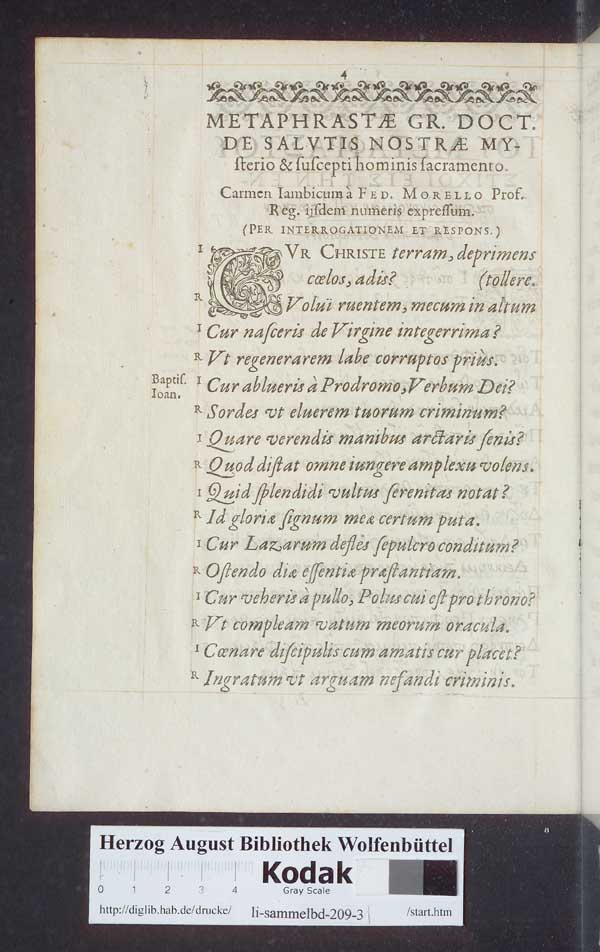 4
METAPHRASTÆ GR. DOCT.
DE SALVTIS NOSTRÆ MY-
ſterio & ſuſcepti hominis ſacramento.
Carmen Iambicum à FED. MORELLO Prof.
Reg. ijſdem numeris expreſſum.
(PER INTERROGATIONEM ET RESPONS.)
I CVR CHRISTE terram, deprimens
cœlos, adis? (tollere.
R Volui ruentem, mecum in altum
I Cur naſceris de Virgine integerrima?
R Vt regenerarem labe corruptos priùs.
Baptiſ. Ioan. I Cur ablueris à Prodromo, Verbum Dei?
R Sordes vt eluerem tuorum criminum?
I Quare verendis manibus arctaris ſenis?
R Quod diſtat omne iungere amplexu volens.
I Quid ſplendidi vultus ſerenitas notat?
R Id gloriæ ſignum meæ certum puta.
I Cur Lazarum defles ſepulcro conditum?
R Oſtendo diæ eſſentiæ præſtantiam.
I Cur veheris à pullo, Polus cui eſt pro throno?
R Vt compleam vatum meorum oracula.
I Cœnare diſcipulis cum amatis cur placet?
R Ingratum vt arguam nefandi criminis.
Herzog August Bibliothek Wolfenbüttel
Kodak
Gray Scale
0 1 2 3 4
http://diglib.hab.de/drucke/ li-sammelbd-209-3 /start.htm
8